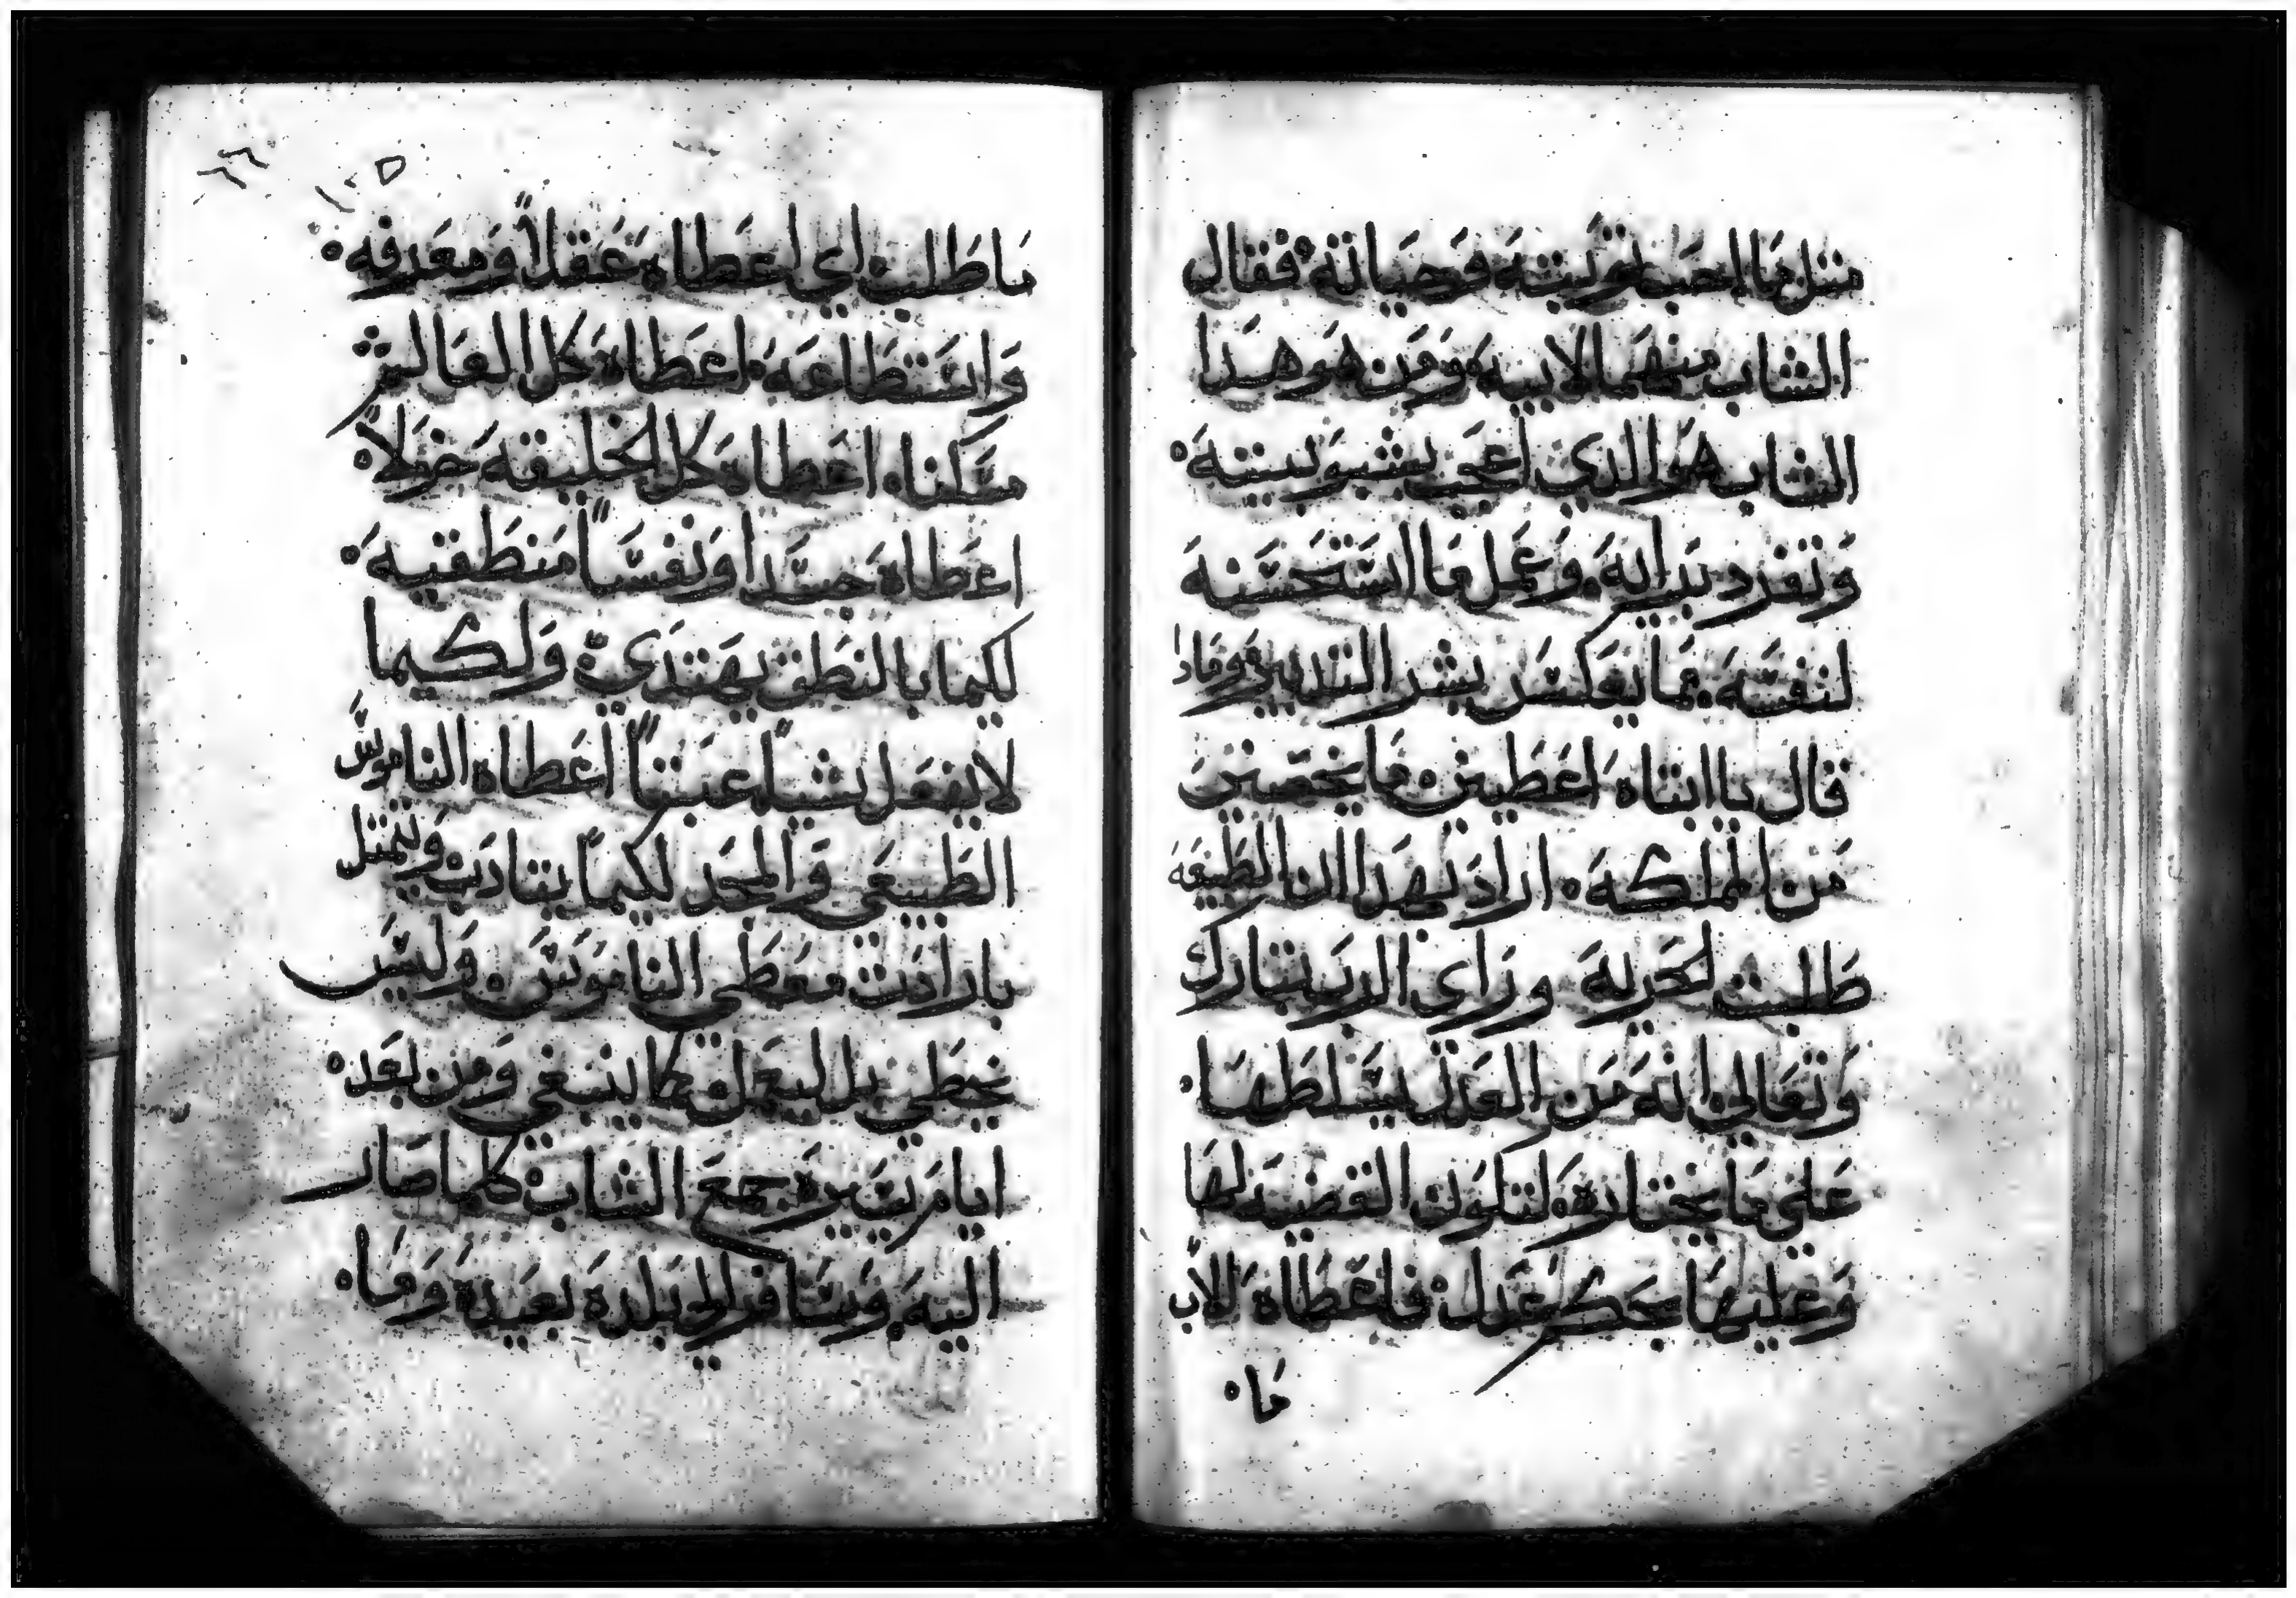 مثل ما احب تربيته وحياته فقال
الشاب منهما لابيه ومن هو هدا
الشاب هو الدي اعجب بشبوبيته
وتفرد برايه وعمل ما استحسنه
لنفسه فما يعكس بشر التدبير وماذا
قال يا ابتاه اعطيني ما يخصني
من المملكه اراد بهدا ان الطبيعه
طلبت الحريه وراى الرب تبارك
وتعالى انه من العدل يسلطها
على ما يختاره لتكون القضيه لها
وعليها بحكم عدل فاعطاه الاب
ما
١٠٥
ما طلب اي اعطاه عقلاً ومعرفه
واستطاعه اعطاه كل العالم
مسكناه اعطاه كل الخليقه خولاً
اعطاه جسدا ونفساً منطقيه
لكيما بالنطق يهتدي ولكيما
لا يفعل شياً عبثاً اعطاه الناموس
الطبيعي والمجد لكيما يتادب ويتمثل
بارادت معطي الناموس وليس
يخطي بل ليعمل كما ينبغي ومن بعد
ايام يسيره جمع الشاب كلما صار
اليه وسافر الى بلده بعيده وما